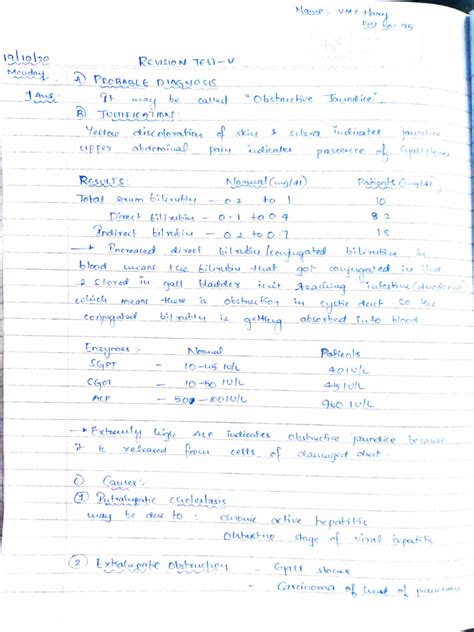 Name:
19/10/20
REVISION TEST-V
Monday
A) PROBABLE DIAGNOSIS
1 Ans
It may be called "Obstructive Jaundice"
B) JUSTIFICATION:
Yellow discoloration of skin & sclera indicates jaundice
upper abdominal pain indicates presence of Gallstones
RESULTS: Normal (mg/dl) Patients (mg/dl)
Total serum bilirubin - 0.2 to 1 10
Direct bilirubin - 0.1 to 0.4 8.2
Indirect bilirubin - 0.2 to 0.7 1.8
→ Increased direct bilirubin/conjugated bilirubin in
blood means the bilirubin that got conjugated in
& stored in gall bladder isn't reaching intestine
which means there is obstruction in cystic duct so the
conjugated bilirubin is getting absorbed into blood
Enzymes:- Normal Patients
SGPT - 10-45 IU/L 40 IU/L
SGOT - 10-50 IU/L 45 IU/L
ALP - 100 IU/L 960 IU/L
→ Extremely high ALP indicates obstructive jaundice because
it is released from cells of damaged duct.
C) Causes:-
① Intrahepatic cholestasis
may be due to : chronic active hepatitis
Obstructive stage of viral hepatitis
② Extrahepatic Obstruction - Gall stones
- Carcinoma of head of pancreas